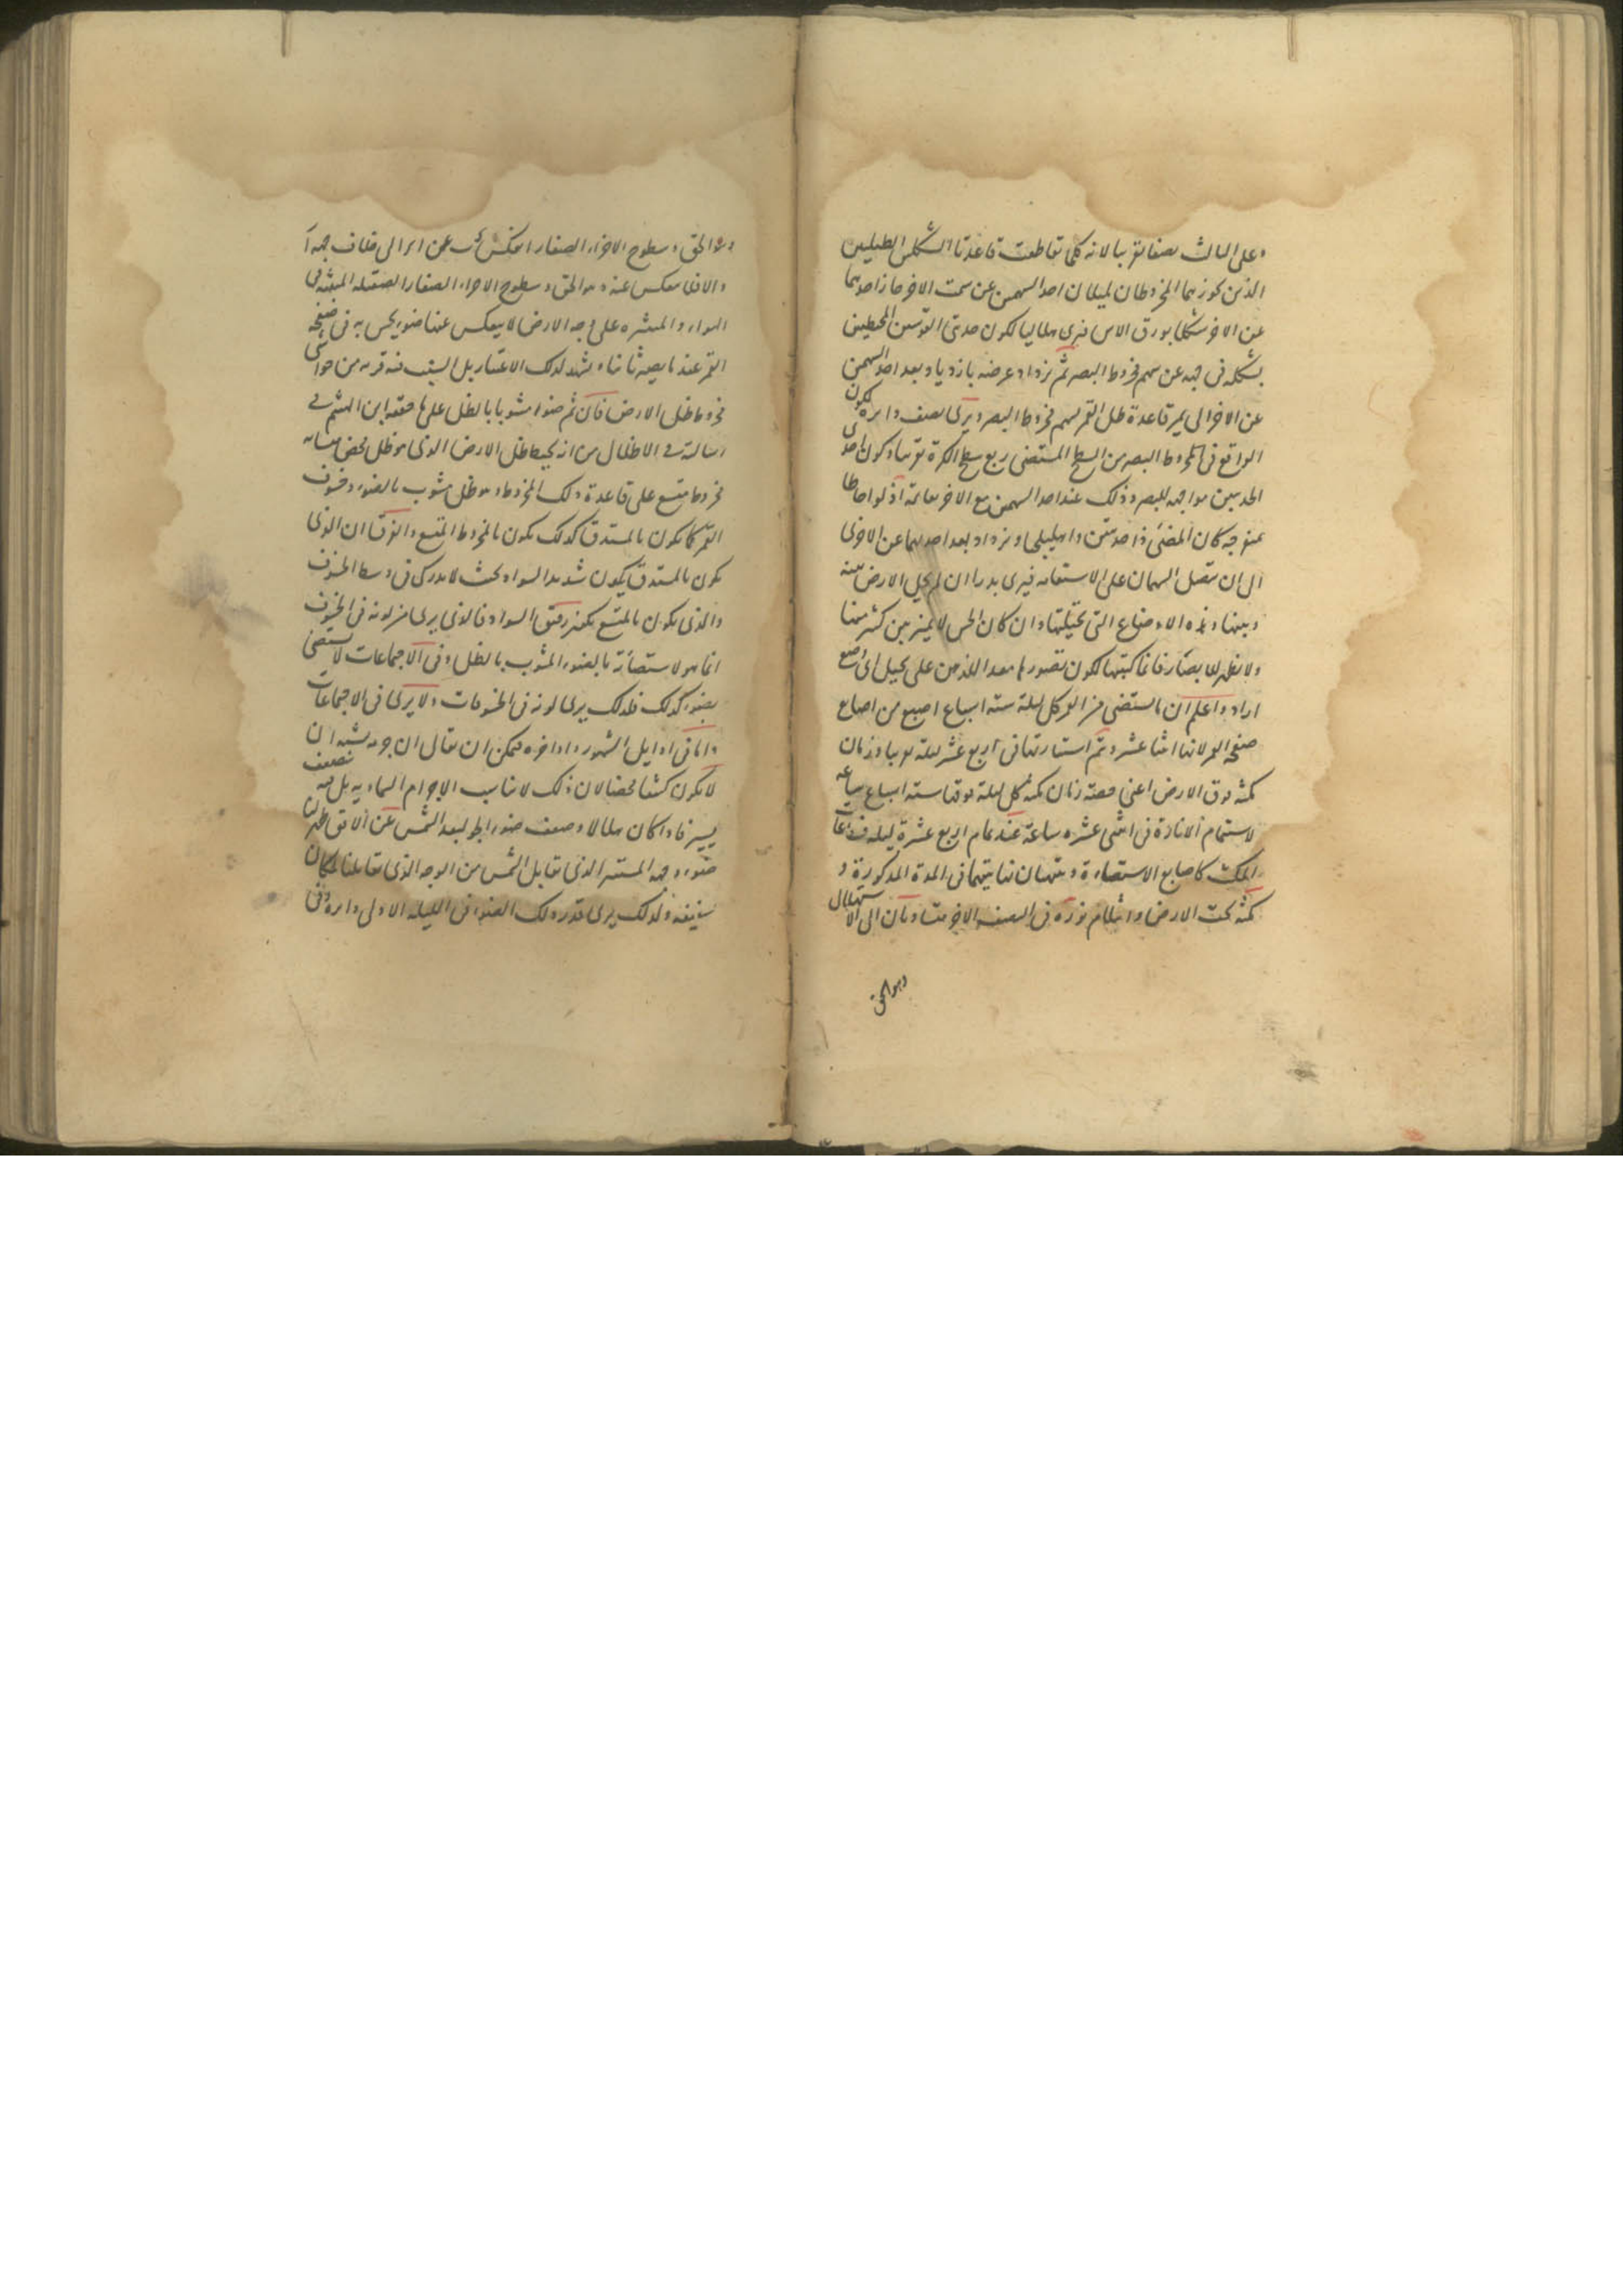 وعلى الثالث نصفا تقريبا لانه كلما تقاطعت قاعدتا الشكلين الطبليين
الذين يحوزهما المخروطان لميلان احد السهمين عن سمت الاخر حاز احدهما
عن الاخر شكلا بورق الاس فيرى هلاليا لكون حدبتى القوسين المحيطين
بشكله فى جهة عن سهم مخروط البصر ثم يزداد عرضه بازدياد بعد احد السهمين
عن الاخر الى يمر قاعدة ظل القمر بسهم مخروط البصر ويرى نصف دائرة لكون
الواقع فى مخروط البصر من السطح المستضى ربع سطح الكرة تقريبا وكون احدى
الحدبيين مواجهه للبصر وذلك عند احد السهمين مع الاخر قائمة اذ لو احاطا
بمنفرجه كان المضئ ذا حدبتين واهليلجى ويزداد بعد احدهما عن الاخرى
الى ان يتصل السهمان على الاستقامه فيرى بدرا ان لم يحل الارض بينه
وبينها وهذه الاوضاع التى تخيلتها وان كان الحس لا يميز بين كثير منها
ولا يظهر للابصار فانما كتبتها لكون تصورها معد اللذهن على تخيل اى وضع
اراد واعلم ان المستضى من القمر كل ليلة ستة اسباع اصبع من اصابع
صفحة القمر لانها اثنا عشر وتتم استنارتها فى اربع عشر ليلة تقريبا وزمان
مكثه فوق الارض اعنى حصته زمان مكثه كل ليلة فوقها ستة اسباع ساعه
لاستتمام الانارة فى اثنى عشره ساعة عند تمام اربع عشرة ليلة فساعات
المكث كاصابع الاستضاءة وينتهيان نهايتهما فى المدة المذكورة و
مكثه تحت الارض واظلام نوره فى النصف الاخر متساويان الى الاستهلال
وهو الحق
وهو الحق وسطوح الاجزاء الصغار انعكس عن المرائى خلاف جهة
والا فما ينعكس عنه وهو الحق وسطوح الاجزاء الصغار الصقيله المنبثه فى
الهواء والمنتشره على وجه الارض لا ينعكس عنها ضوء يحس به فى صفحة
القمر عند ما يصير ثانيا ويشهد لذلك الاعتبار بل السبب فيه قربه من حواشى
مخروط ظل الارض فان ثم ضوءا مشوبا بالظل على ما حققه ابن الهيثم فى
رسالته فى الاظلال من انه يحيط بظل الارض الذى هو ظل محض
مخروط متسع على قاعدة ذلك المخروط وهو ظل مشوب بالضوء وخسوف
القمر كما يكون بالمستدق كذلك يكون بالمخروط المتسع والفرق ان الذى
يكون بالمستدق يكون شديد السواد بحيث لا يدرك فى وسط الخسوف
والذى يكون بالمتسع يكون رقيق السواد فالذى يرى من لونه فى الخسوف
انما هو لاستضائة بالضوء المشوب بالظل وفى الاجتماعات لا يستضئ
بضوء كذلك فلذلك يرى لونه فى الخسوفات ولا يرى فى الاجتماعات
واما فى اوايل الشهور واواخره فيمكن ان يقال ان جرمه يشبه ان
لا يكون كثيفا محضا لان ذلك لا يناسب الاجرام السماويه بل فيه شفيف
يسير فاذا كان هلالا وضعف ضوء الجو لبعد الشمس عن الافق ظهر لنا
ضوء وجهه المستتر الذى يقابل الشمس من الوجه الذى يقابلنا لمكان
شفيفه ولذلك يرى قدر ذلك الضوء فى الليله الاولى دايرة وفى